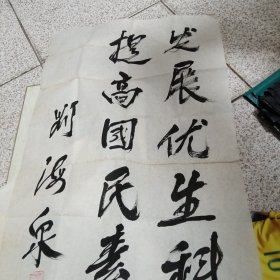 发展优生科
提高國民素
海泉